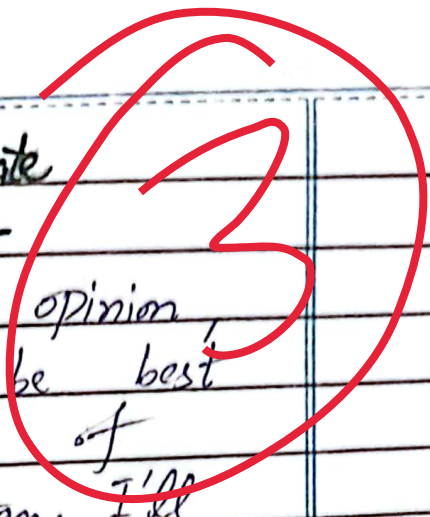 3
opinion
be best
of
I'll